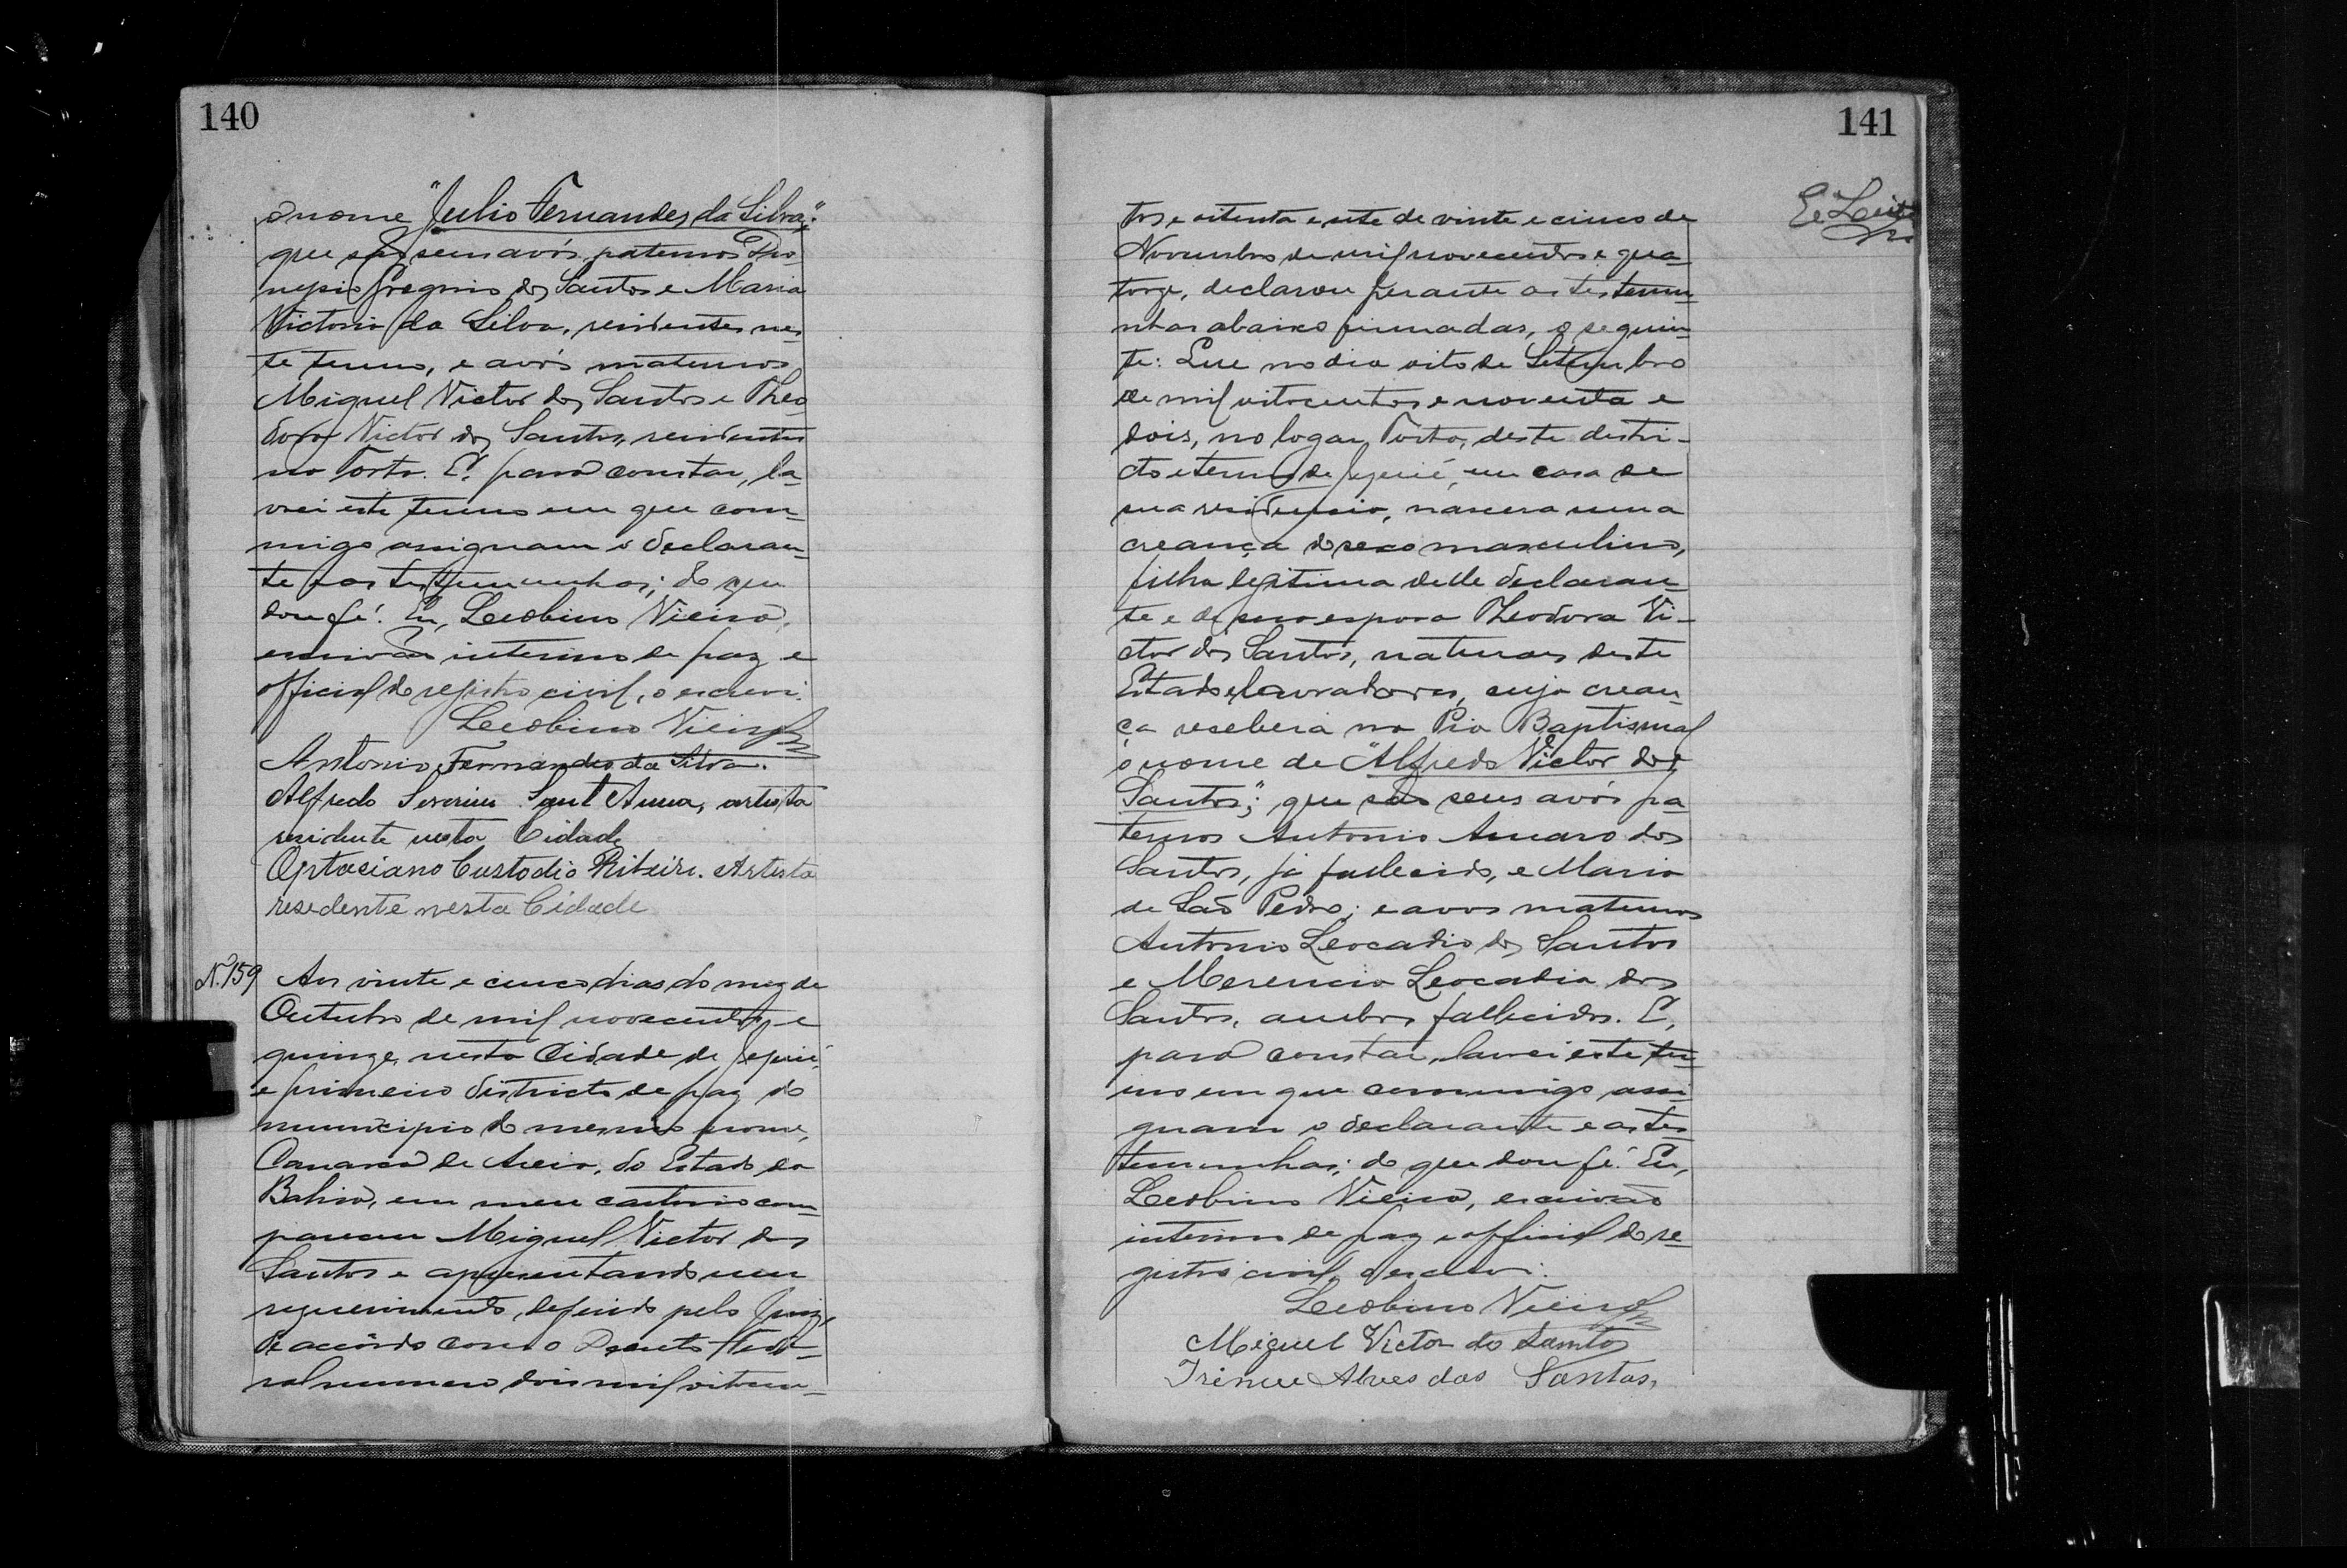 140
o nome "Julio Fernandes da Silva";
que são seus avós paternos Dio-
nysio Gregorio dos Santos e Maria
Victoria da Silva, residentes nes-
te termo, e avós maternos
Miguel Victor dos Santos e Theo
dora Victor dos Santos, residentes
no Porto. E, para constar, la-
vrei este termo em que com-
migo assignam o declaran-
te e as testemunhas; do que
dou fé. Eu, Leobino Vieira,
escrivão interino de paz e
official do registro civil, o escrevi.
Leobino Vieira
Antonio Fernandes da Silva.
Alfredo Severino Sant'Anna, artista
residente nesta Cidade
Custodio Ribeiro. Artista
resedente nesta Cidade
N. 159 Aos vinte e cinco dias do mez de
Outubro de mil novecentos e
quinze, nesta Cidade de Jequié,
e primeiro districto de paz do
municipio do mesmo nome,
Comarca de Areia, do Estado da
Bahia, em meu cartorio com-
pareceu Miguel Victor dos
Santos e apresentando um
requerimento, deferido pelo Juiz,
de accôrdo com o Decreto Fede-
ral numero dois mil oitocen-
141
tos e oitenta e sete de vinte e cinco de
Novembro de mil novecentos e qua-
torze, declarou perante as testemu-
nhas abaixo firmadas, o seguin-
te: Que no dia oito de Setembro
de mil oitocentos e noventa e
dois, no logar Porto, deste distri-
cto e termo de Jequié, em casa de
sua residencia, nascera uma
creança do sexo masculino,
filha legitima delle declaran-
te e de sua esposa Theodora Vi-
ctor dos Santos, naturaes deste
Estado e lavradores, cuja crean-
ça receberá na Pia Baptismal
o nome de "Alfredo Victor dos
Santos"; que são seus avós pa-
ternos Antonio Amaro dos
Santos, já fallecido, e Maria
de São Pedro; e avos maternos
Antonio Leocadio dos Santos
e Merencia Leocadia dos
Santos, ambos fallecidos. E,
para constar, lavrei este ter-
mo em que commigo assi-
gnam o declarante e as tes-
temunhas; do que dou fé. Eu,
Leobino Vieira, escrivão
interino de paz e official do re-
gistro civil, o escrevi.
Leobino Vieira
Miguel Victor do Santos
Irineu Alves dos Santos,